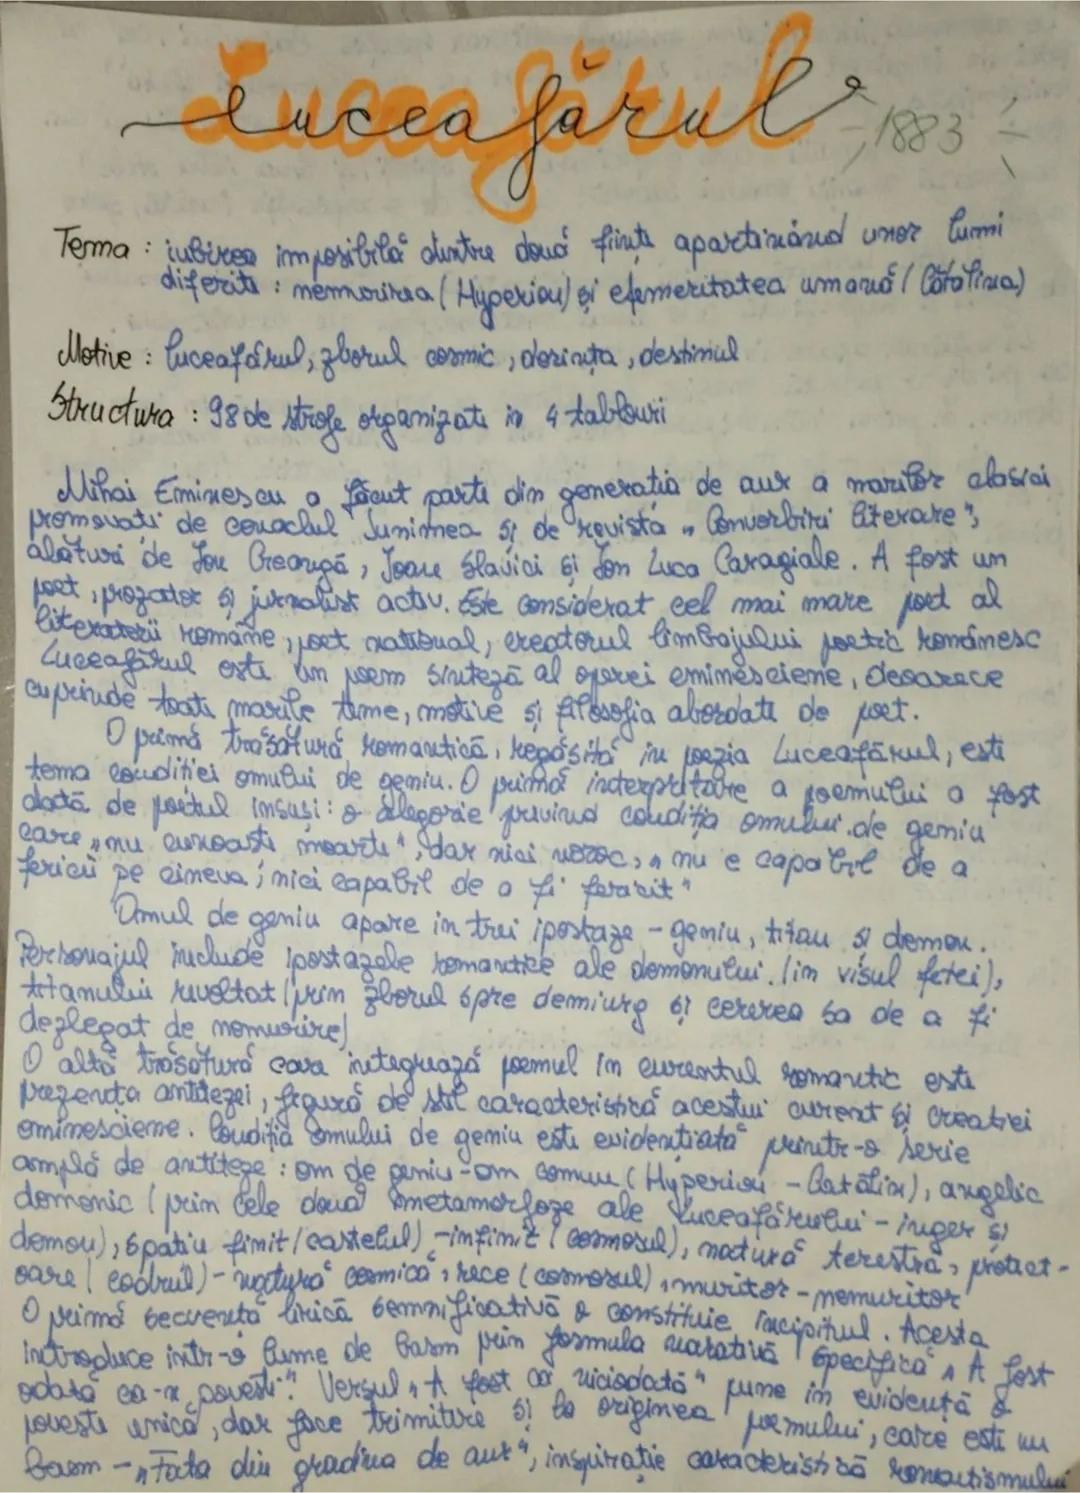 Luceafărul - 1883 -
Tema : iubirea imposibilă dintre două ființe aparținând unor lumi
diferite : nemurirea (Hyperion) și efemeritatea umană (Cătălina)
Motive : luceafărul, zborul cosmic, dorința, destinul
Structura : 98 de strofe organizate in 4 tablouri
Mihai Eminescu a făcut parte din generația de aur a marilor clasici
promovați de cenaclul Junimea și de revista „Convorbiri literare”,
alături de Ion Creangă, Ioan Slavici și Ion Luca Caragiale. A fost un
poet, prozator și jurnalist activ. Este considerat cel mai mare poet al
literaturii române, poet național, creatorul limbajului poetic românesc
Luceafărul este un poem sinteză al operei eminesciene, deoarece
cuprinde toate marile teme, motive și filosofia abordate de poet.
O primă trăsătură romantică, regăsită in poezia Luceafărul, este
tema condiției omului de geniu. O primă interpretare a poemului a fost
dată de poetul insuși: o alegorie privind condiția omului de geniu
care „nu cunoaște moarte”, dar nici noroc, „nu e capabil de a
ferici pe cineva, nici capabil de a fi fericit”
Omul de geniu apare in trei ipostaze - geniu, titan și demon.
Personajul include ipostazele romantice ale demonului (in visul fetei),
titanului revoltat (prin zborul spre demiurg și cererea sa de a fi
dezlegat de nemurire)
O altă trăsătură care integrează poemul în curentul romantic este
prezența antitezei, figură de stil caracteristică acestui curent și creației
eminesciene. Condiția omului de geniu este evidențiată printr-o serie
amplă de antiteze : om de geniu - om comun (Hyperion - Cătălin), angelic
demonic (prin cele două metamorfoze ale Luceafărului - inger și
demon), spațiu finit (castelul) - infinit (cosmosul), natură terestră, protect-
oare (codrul) - natură cosmică, rece (cosmosul), muritor - nemuritor
O primă secvență lirică semnificativă o constituie incipitul. Acesta
introduce intr-o lume de basm prin formula narativă specifică „A fost
odată ca-n povești”. Versul „A fost ca niciodată” pune in evidență o
poveste unică, dar face trimitere și la originea poemului, care este un
basm - „Fata din gradina de aur”, inspirație caracteristică romantismului